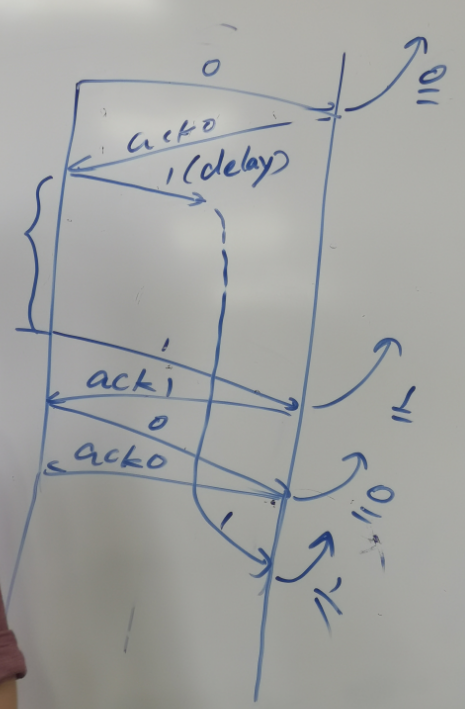 0
0
ack0
1 (delay)
1
ack1
1
0
ack0
0
1
1